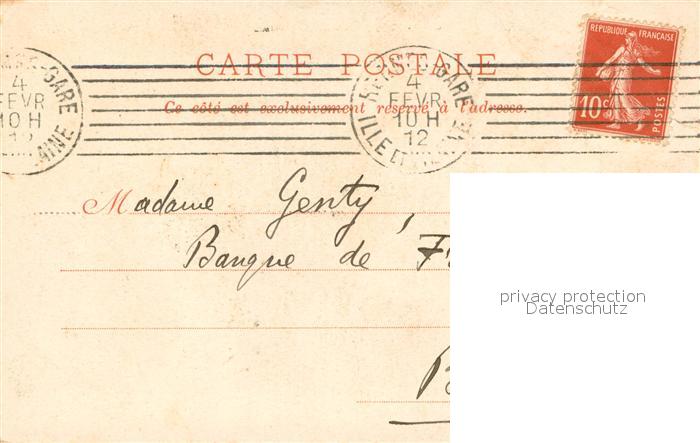 CARTE POSTALE
Ce côté est exclusivement réservé à l'adresse.
RÉPUBLIQUE FRANÇAISE
10c
POSTES
GARE
4
FEVR
10 H
12
AINE
GARE
4
FEVR
10 H
12
ILLE ET
Madame Genty,
Banque de
privacy protection
Datenschutz